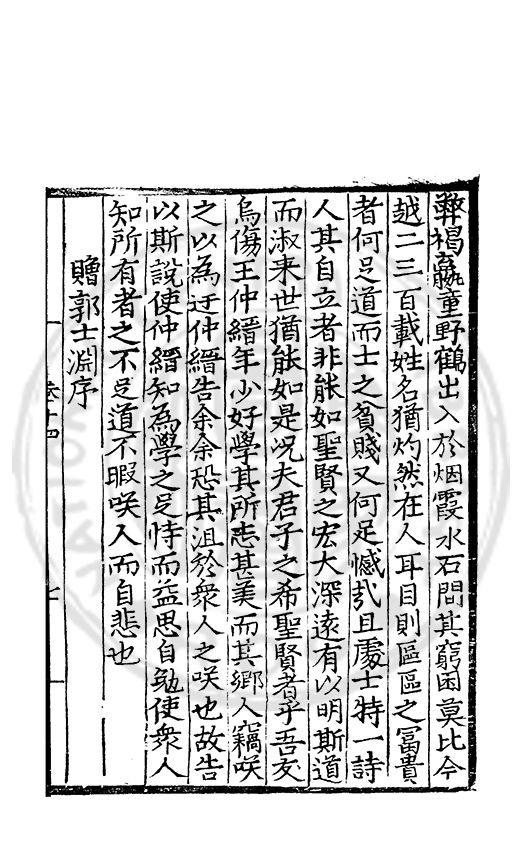 弊褐羸童野鶴出入於烟霞水石問其窮困莫比今
越二三百載姓名猶灼然在人耳目則區區之冨貴
者何足道而士之貧賤又何足憾哉且處士特一詩
人其自立者非能如聖賢之宏大深遠有以明斯道
而淑来世猶能如是况夫君子之希聖賢者乎吾友
烏傷王仲縉年少好學其所志甚美而其鄉人竊咲
之以為迂仲縉告余余恐其沮於衆人之咲也故告
以斯說使仲縉知為學之足恃而益思自勉使衆人
知所有者之不足道不暇咲人而自悲也
贈郭士淵序
卷十四
七